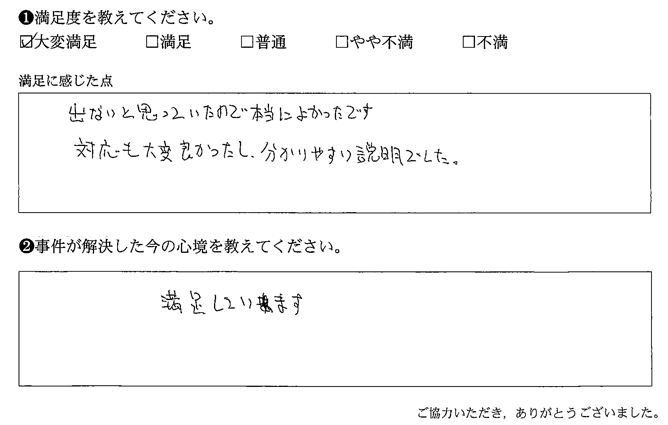 ❶満足度を教えてください。
☑大変満足 □満足 □普通 □やや不満 □不満
満足に感じた点
出ないと思っていたので本当によかったです
対応も大変良かったし、分かりやすい説明でした。
❷事件が解決した今の心境を教えてください。
満足しています
ご協力いただき，ありがとうございました。